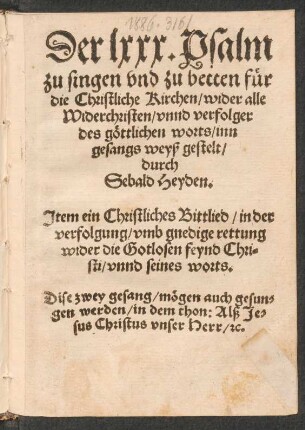 1886. 316
Der lxxx. Psalm
zu singen vnd zu betten für
die Christliche Kirchen/wider alle
Widerchristen/vnnd verfolger
des göttlichen worts/inn
gesangs weyß gestelt/
durch
Sebald Heyden.
Item ein Christliches Bittlied/in der
verfolgung/vmb gnedige rettung
wider die Gotlosen feynd Chri-
sti/vnnd seines worts.
Dise zwey gesang/mögen auch gesun-
gen werden/in dem thon: Alß Je-
sus Christus vnser Herr/ꝛc.